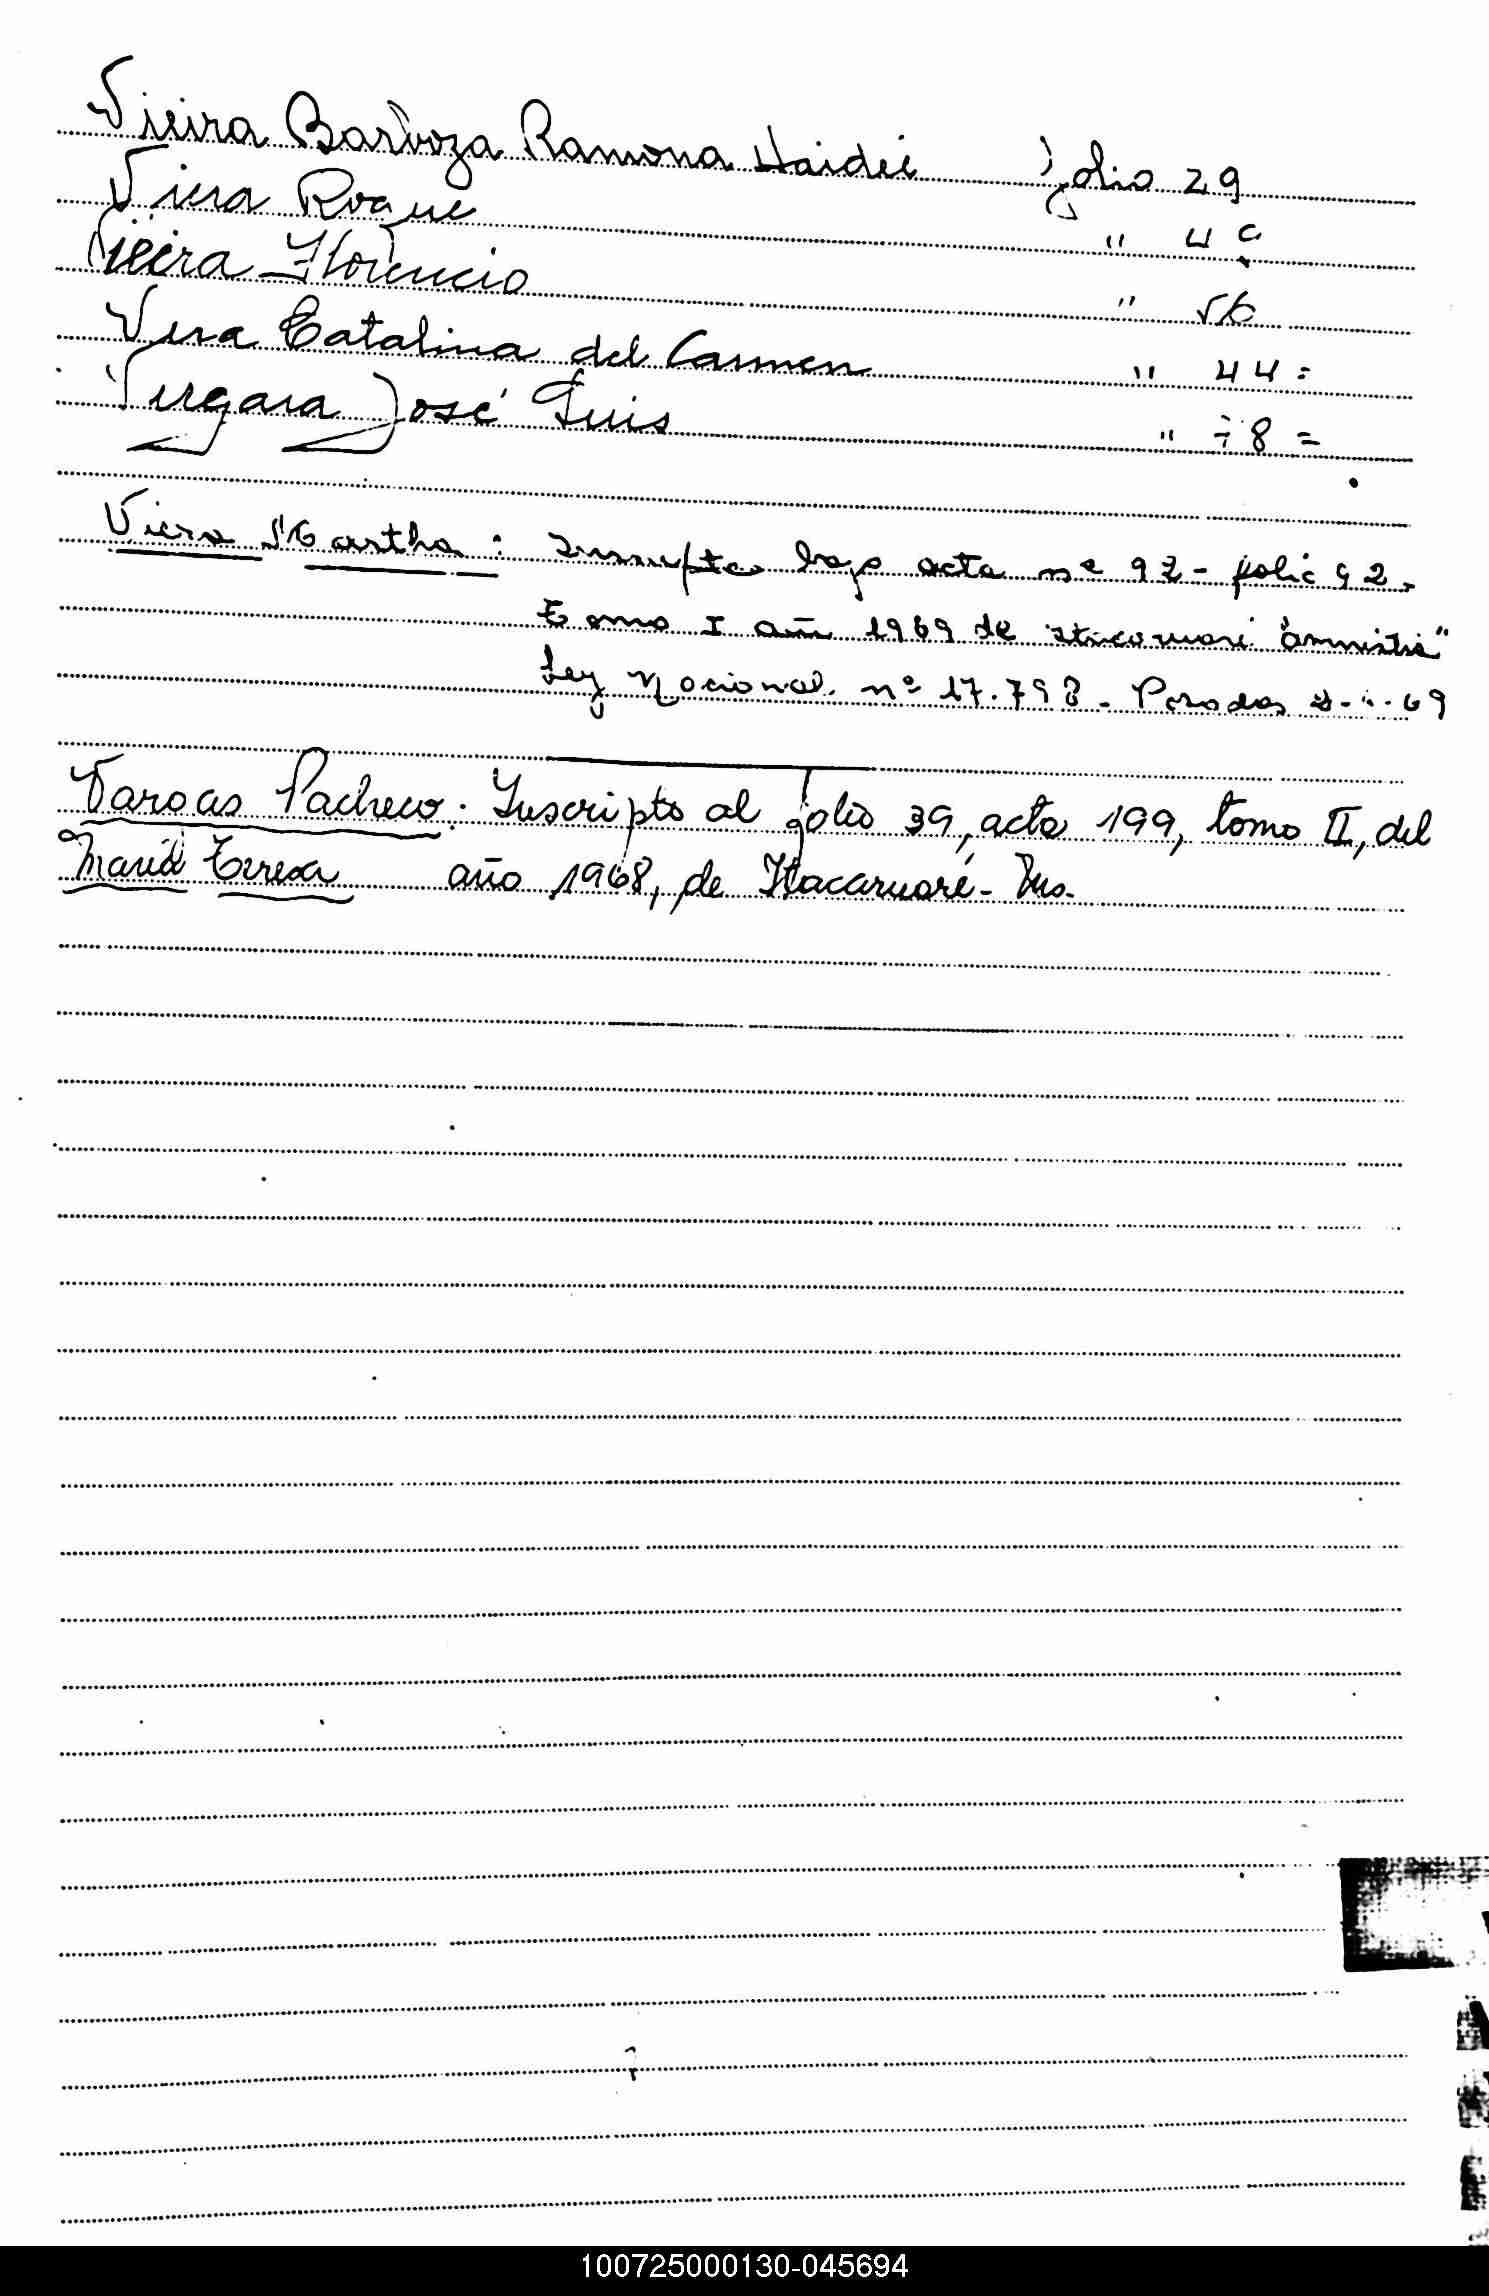 Vieira Barboza Ramona Haidee folio 29
Viera Roque " 49
Vieira Florencio " 56
Vera Catalina del Carmen " 44 =
Vergara José Luis " 78 =
Viera Martha: Inscripta bajo acta nº 92 - folio 92.
Tomo I año 1969 de Itacaruaré "amnistia"
Ley Nacional nº 17.798 - Posadas 69
Vargas Pacheco. Inscripto al folio 39, acta 199, tomo II, del
Maria Teresa año 1968, de Itacaruaré - Mns.
100725000130-045694